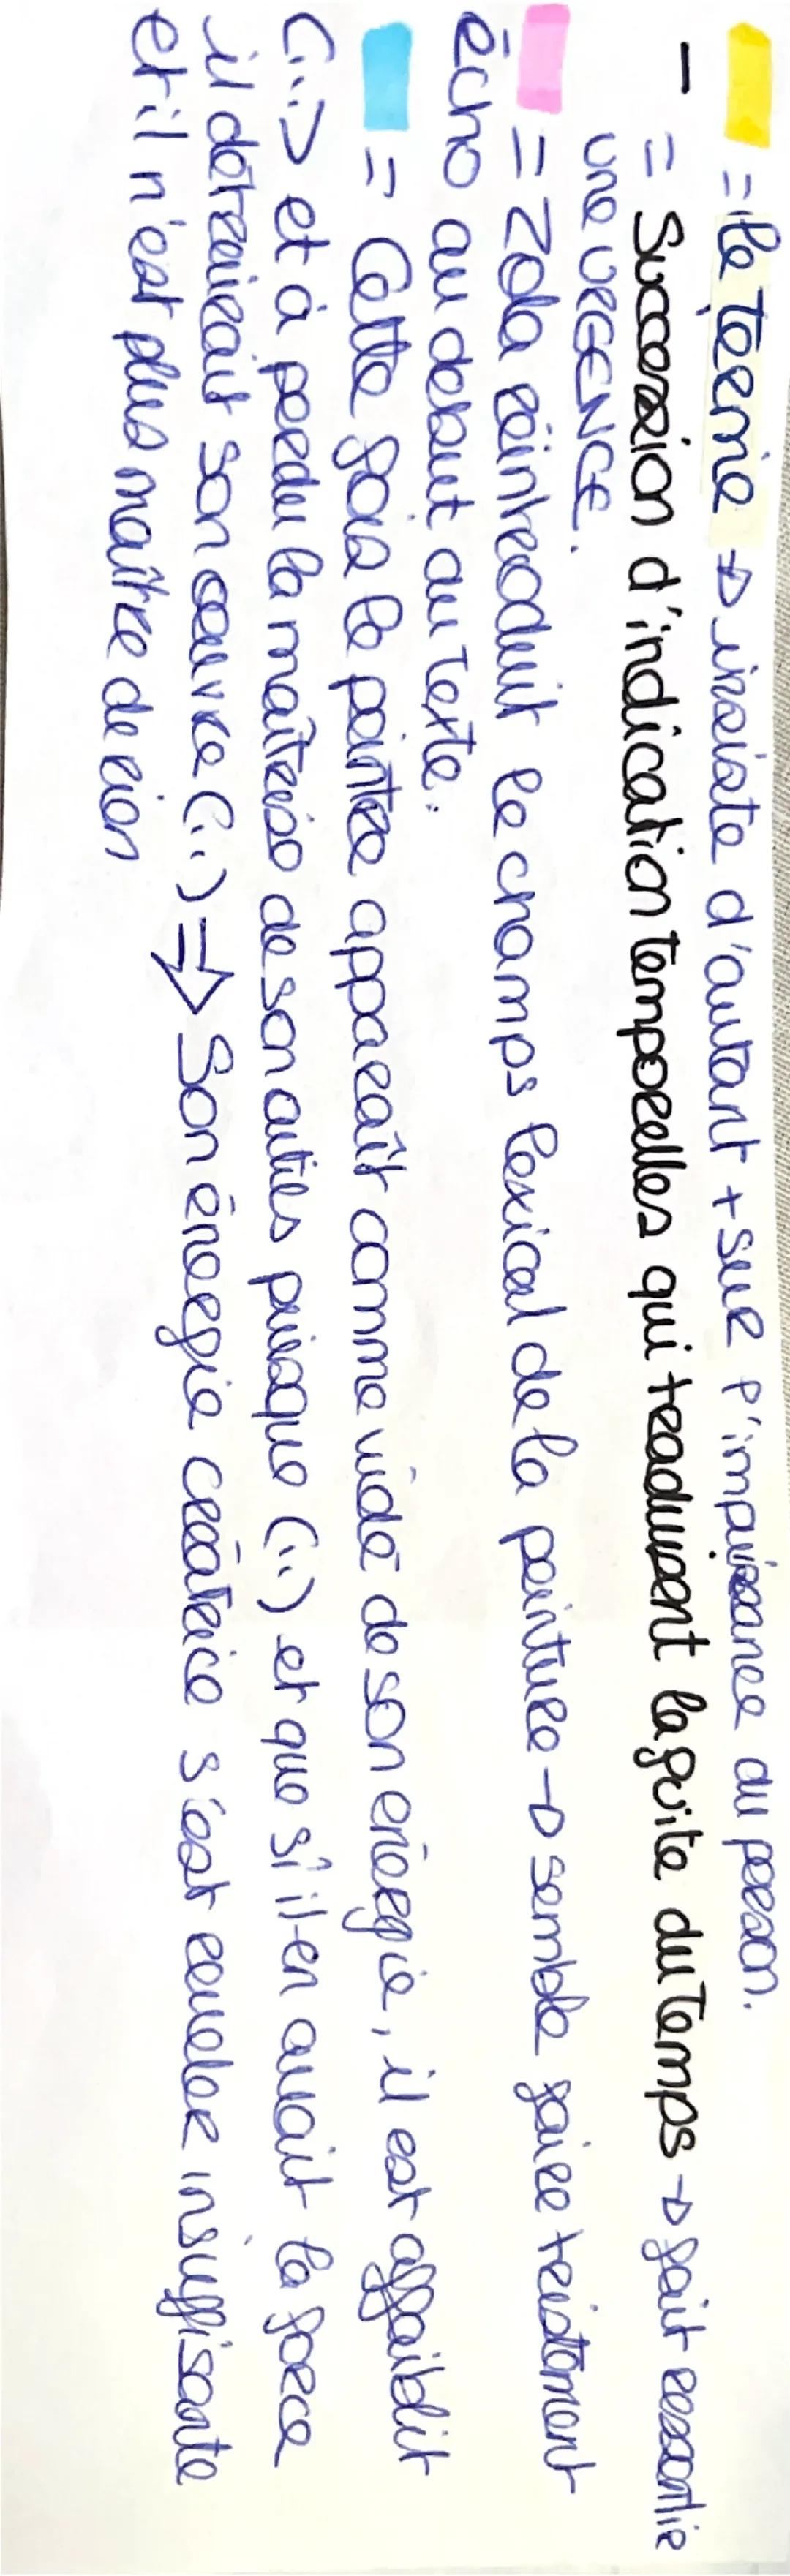 = le terme → insiste d'autant + sur l'impuissance du person.
- = Succession d'indication temporelles qui traduisent la fuite du temps → fait ressortir
une URGENCE.
= Zola réintroduit le champs lexical de la peinture → semble faire tristement
écho au debut du texte.
= Cette fois le peintre apparaît comme vidé de son énergie, il est affaiblit
(...) et à perdu la maîtrise de son outils puisque (...) et que s'il en avait la force
il détruirait son œuvre (...) ⇒ Son énergie créatrice s'est
et il n'est plus maître de rien